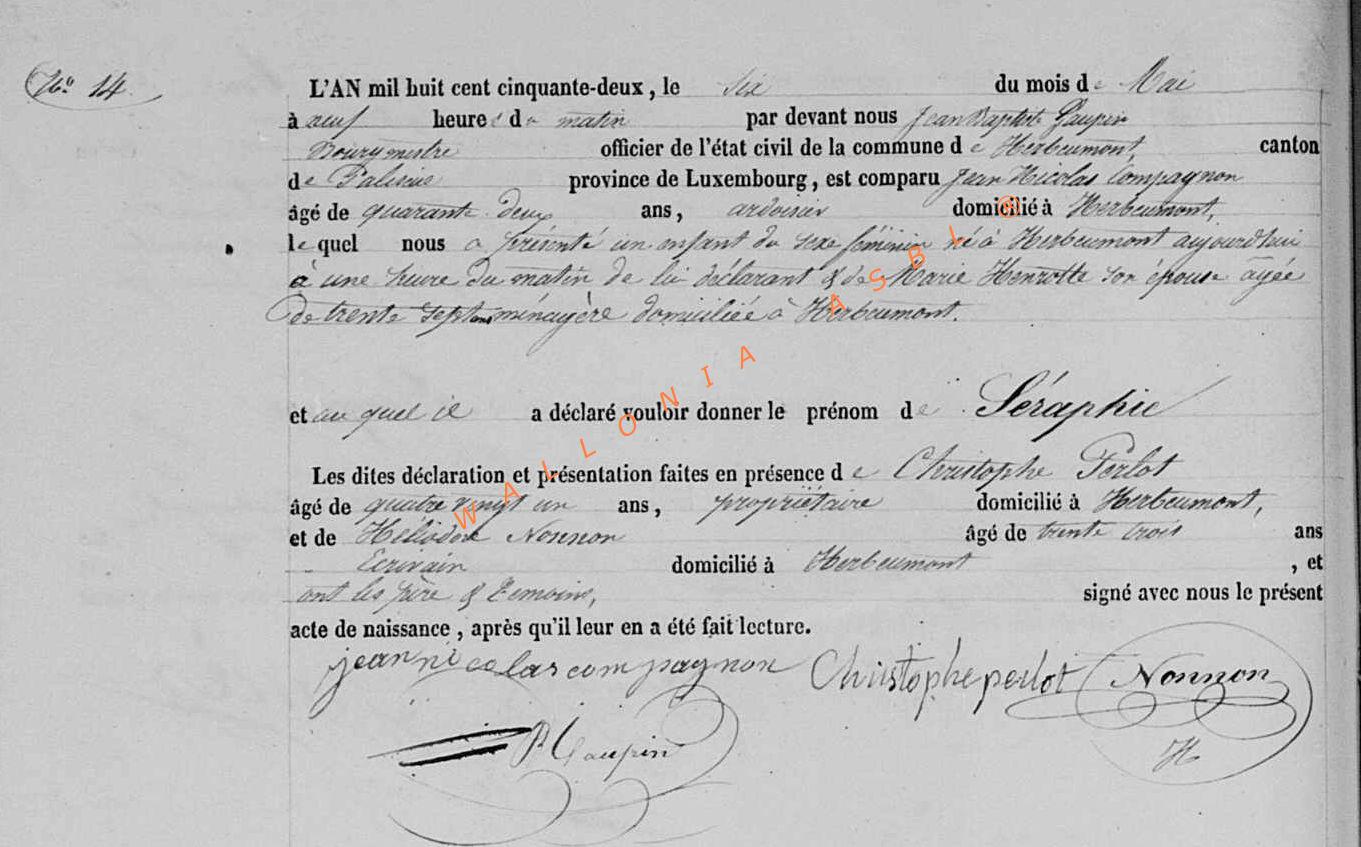 No 14
L'AN mil huit cent cinquante-deux, le six du mois de Mai
à neuf heures du matin par devant nous Jean Baptiste Gaupin
Bourgmestre officier de l'état civil de la commune de Herbeumont, canton
de Paliseul province de Luxembourg, est comparu Jean Nicolas Compagnon
âgé de quarante deux ans, ardoisier domicilié à Herbeumont,
lequel nous a présenté un enfant du sexe féminin né à Herbeumont aujourd'hui
à une heure du matin de lui déclarant & de Marie Henrotte son épouse âgée
de trente sept ans ménagère domiciliée à Herbeumont.
et au quel il a déclaré vouloir donner le prénom de Séraphie
Les dites déclaration et présentation faites en présence de Christophe Perlot
âgé de quatre vingt un ans, propriétaire domicilié à Herbeumont,
et de Héliodore Nonnon âgé de trente trois ans
Ecrivain domicilié à Herbeumont, et
ont les père & témoins, signé avec nous le présent
acte de naissance, après qu'il leur en a été fait lecture.
jean nicolas compagnon Christophe perlot Nonnon
H
WALLONIA ASBL ®